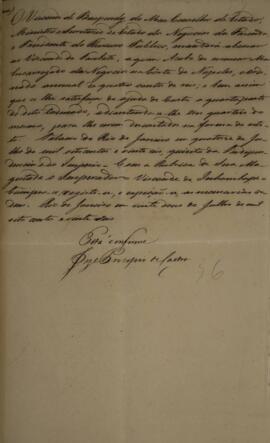 Visconde de Baependy, do Meu Conselho de Estado,
Ministro e Secretario de Estado dos Negocios da Fazenda
e Presidente do Thesouro Publico, mandará abonar
ao Visconde da a quem Acabo de nomear Meu
Encarregado dos Negocios na Corte de Napoles, o Orde-
nado annual de quatro contos de reis, e bem assim
que se lhe satisfaça de ajuda de Custo a quarta parte
do dito Ordenado, adiantando-se lhe um quartel do
mesmo, para lhe ser descontado na forma do esti-
lo. Palacio do Rio de Janeiro em quatorze de Ju-
lho de mil oito centos e vinte seis, quinto da Indepen-
dencia e do Imperio. Com a Rubrica de Sua Ma-
gestade o Imperador. Visconde de Inhambupe.
Cumpra-se, registe-se, e expeção-se as necessarias or-
dens. Rio de Janeiro em vinte dous de Julho de mil
oito centos e vinte seis
Está conforme
de Castro